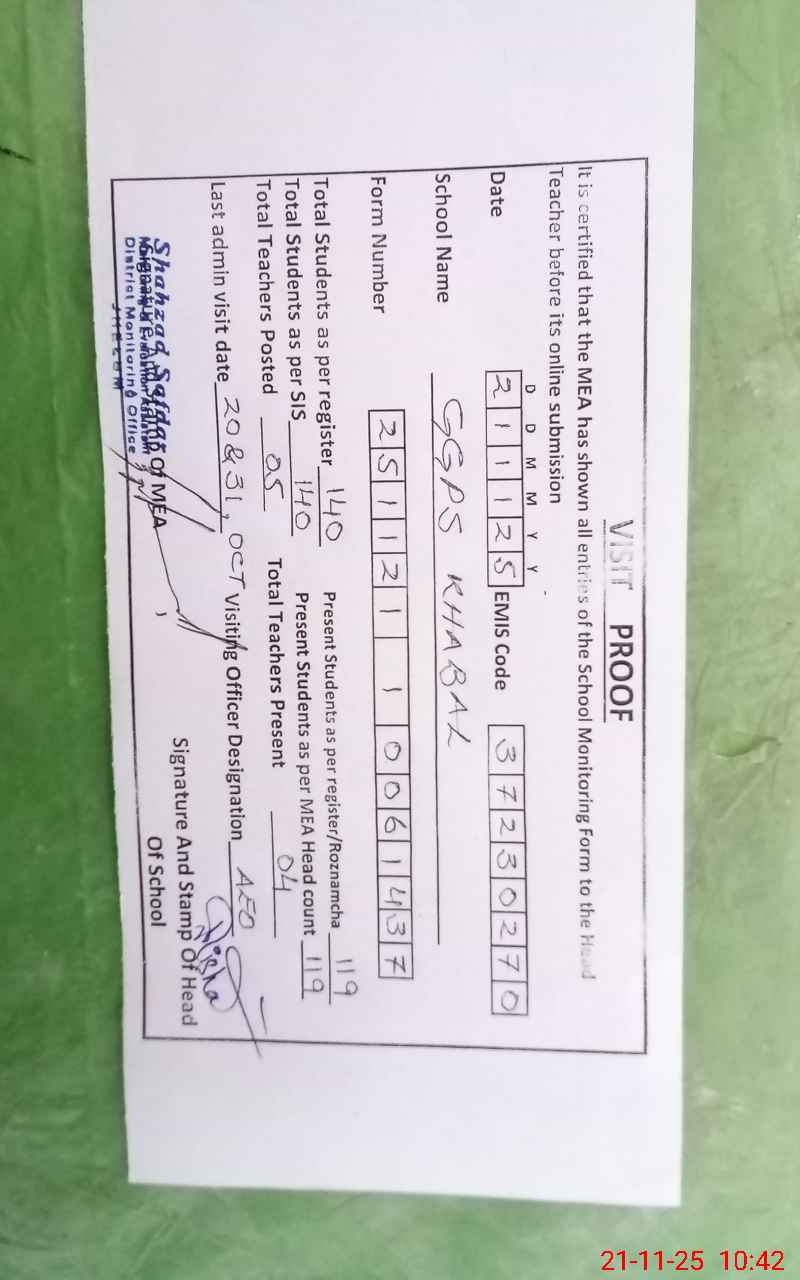 VISIT PROOF
It is certified that the MEA has shown all entries of the School Monitoring Form to the Head
Teacher before its online submission
D D M M Y Y
Date 2 1 1 1 2 5 EMIS Code 3 7 2 3 0 2 7 0
School Name GGPS KHABAL
Form Number 2 5 1 1 2 1 1 0 0 6 1 4 3 7
Total Students as per register 140 Present Students as per register/Roznamcha 119
Total Students as per SIS 140 Present Students as per MEA Head count 119
Total Teachers Posted 05 Total Teachers Present 04
Last admin visit date 20 & 31, OCT Visiting Officer Designation AEO
Shahzad Safdar
Signature And Name Of MEA
District Monitoring Office
JHELUM
Signature And Stamp Of Head
Of School
21-11-25 10:42